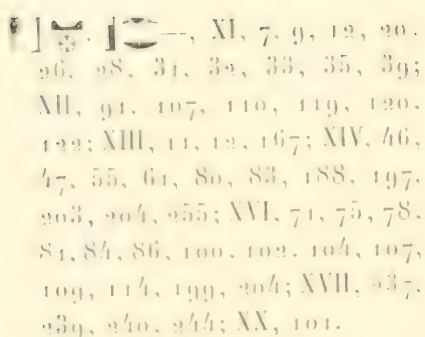 XI, 7, 9, 12, 20,
26, 28, 31, 32, 33, 35, 39;
XII, 91, 107, 110, 119, 120,
122; XIII, 11, 12, 167; XIV, 46,
47, 55, 61, 80, 83, 188, 197,
203, 204, 255; XVI, 71, 75, 78,
81, 84, 86, 100, 102, 104, 107,
109, 114, 199, 204; XVII, 237,
239, 240, 244; XX, 101.